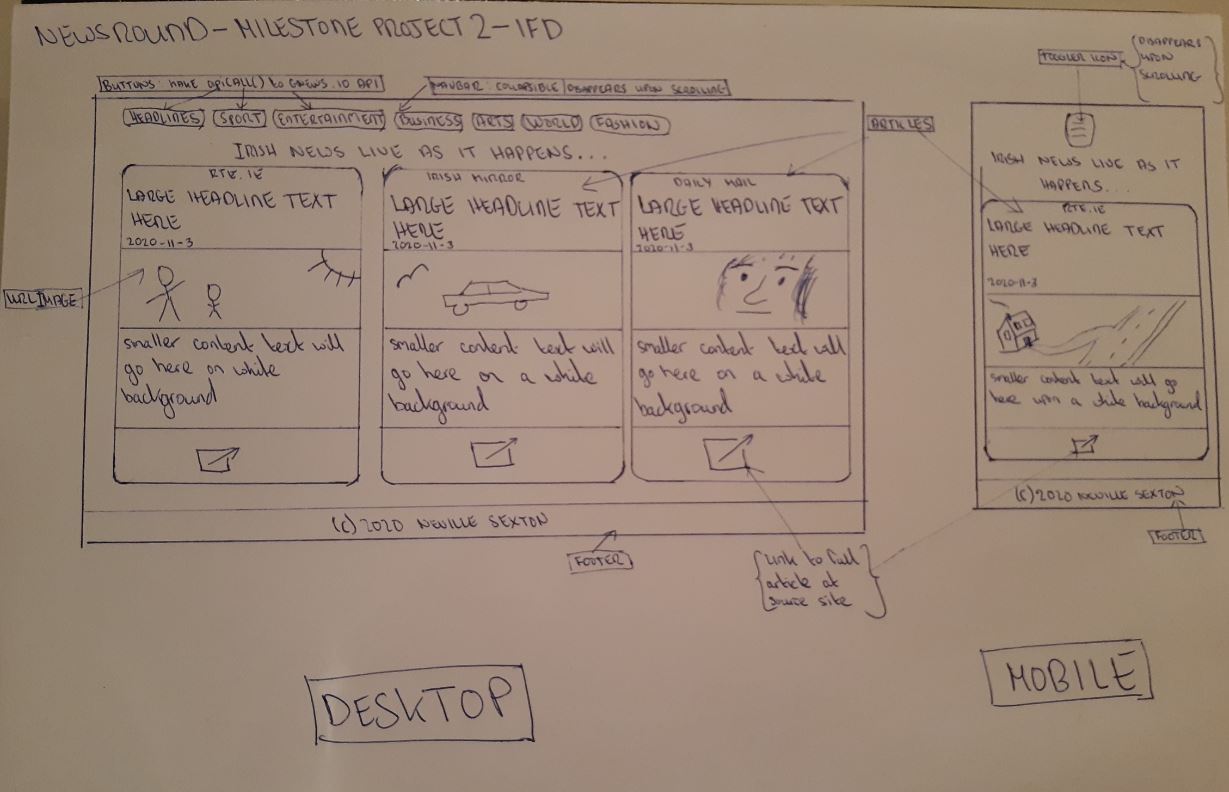 NEWSROUND - MILESTONE PROJECT 2 - IFD
BUTTONS: HAVE APICALL() TO GNEWS.IO API
NAVBAR: COLLAPSIBLE/DISAPPEARS UPON SCROLLING
HEADLINES SPORT ENTERTAINMENT BUSINESS ARTS WORLD FASHION
ARTICLES
IRISH NEWS LIVE AS IT HAPPENS...
RTE.IE
LARGE HEADLINE TEXT
HERE
2020-11-3
smaller content text will
go here on white
background
IRISH MIRROR
LARGE HEADLINE TEXT
HERE
2020-11-3
smaller content text will
go here on a white
background
DAILY MAIL
LARGE HEADLINE TEXT
HERE
2020-11-3
smaller content text will
go here on a white
background
URLIMAGE
(C) 2020 NEVILLE SEXTON
FOOTER
Link to full
article at
source site
DESKTOP
TOGGLER ICON
DISAPPEARS
UPON
SCROLLING
IRISH NEWS LIVE AS IT
HAPPENS...
RTE.IE
LARGE HEADLINE TEXT
HERE
2020-11-3
smaller content text will go
here upon a white background
(C) 2020 NEVILLE SEXTON
FOOTER
MOBILE